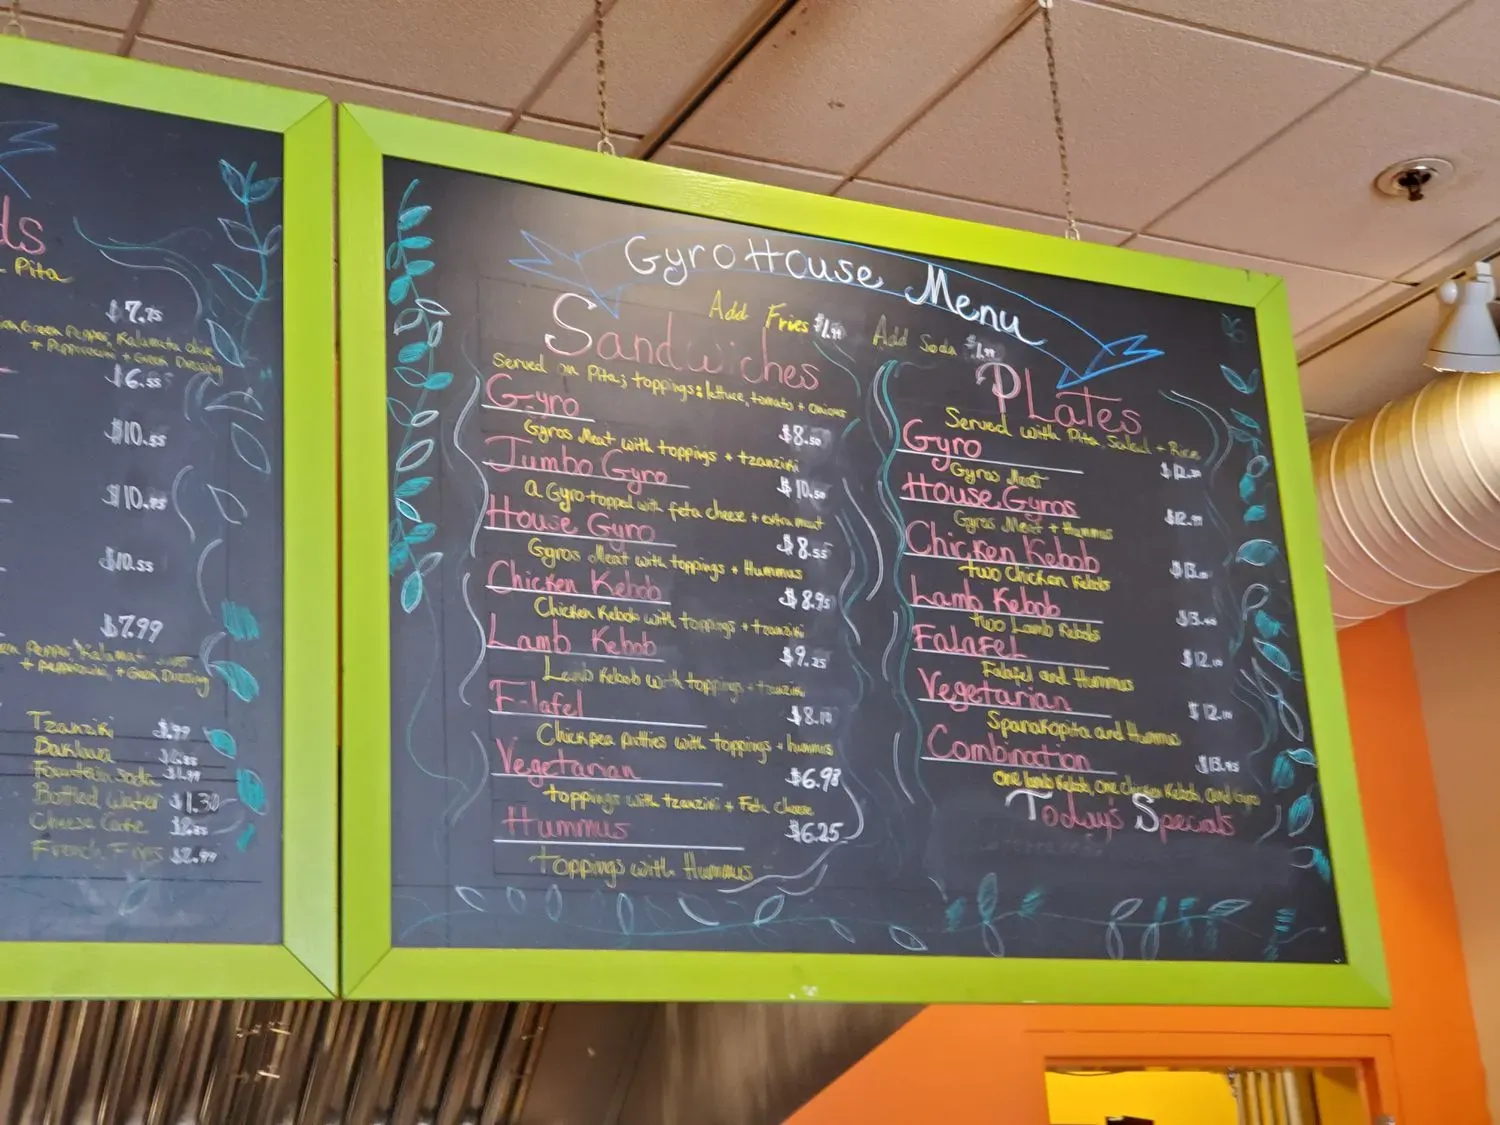 ds
Pita
$7.75
Green Pepper, Kalamata olive,
+ Pepperoncini + Greek Dressing
$6.55
$10.55
$10.95
$10.55
$7.99
Pepper, Kalamata
+ Pepperoncini, + Greek Dressing
Tzanziki $.99
Baklava
Fountain Soda $1.99
Bottled Water $1.30
Cheese Cake
French Fries $2.99
Gyro House Menu
Add Fries $1.99 Add Soda $1.99
Sandwiches
Served on Pita; toppings: lettuce, tomato + onions
Gyro $8.50
Gyros Meat with toppings + tzanziki
Jumbo Gyro $10.50
A Gyro topped with feta cheese + extra meat
House Gyro $8.55
Gyros Meat with toppings + Hummus
Chicken Kebob $8.95
Chicken Kebob with toppings + tzanziki
Lamb Kebob $9.25
Lamb Kebob with toppings + tzanziki
Falafel
Chickpea patties with toppings + hummus
Vegetarian $6.98
toppings with tzanziki + Feta Cheese
Hummus $6.25
toppings with Hummus
Plates
Served with Pita, Salad + Rice
Gyro
Gyros Meat
House Gyros
Gyros Meat + Hummus
Chicken Kebob
two Chicken Kebobs
Lamb Kebob
two Lamb Kebobs
Falafel
Falafel and Hummus
Vegetarian
Spanakopita and Hummus
Combination $13.95
one lamb Kebob, one Chicken Kebob, and Gyro
Today's Specials